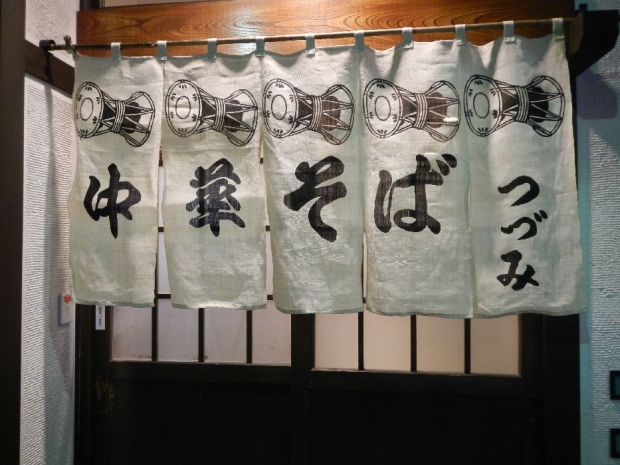 中華そば
つづみ